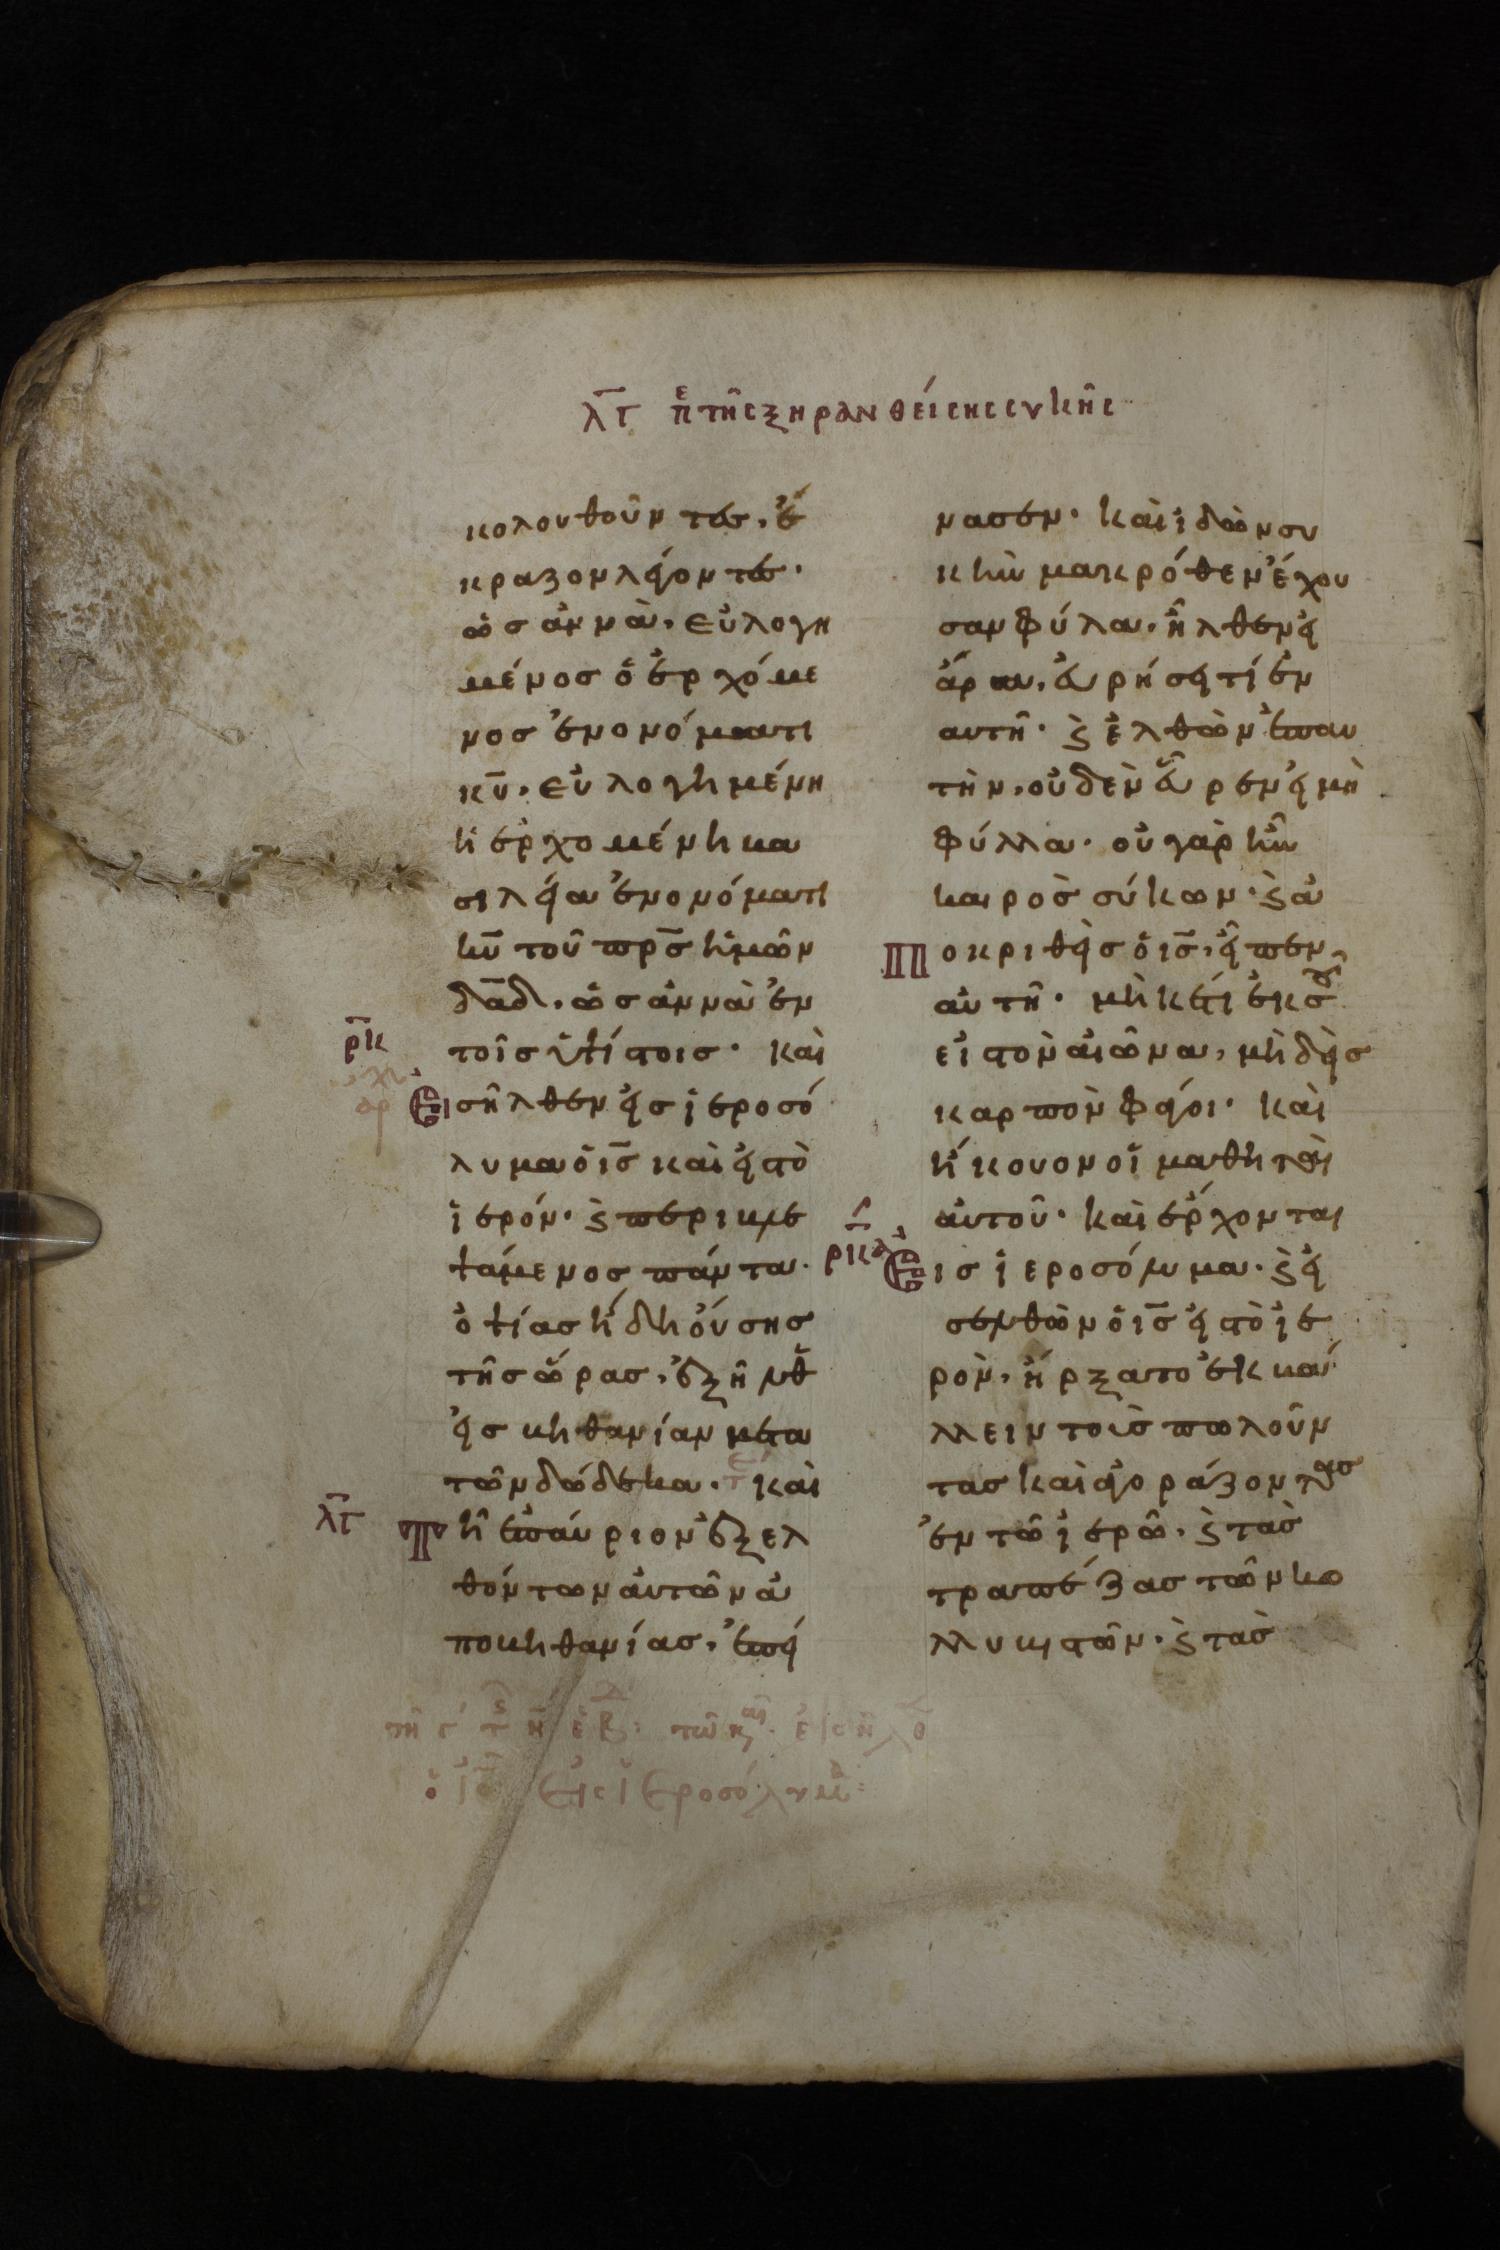 λγ πε τῆς ξηρανθείσης συκῆς
κολουθοῦντες, ἔ
κραζον λέγοντες·
ὡσαννὰ, εὐλογη
μένος ὁ ἐρχόμε
νος ἐν ὀνόματι
κυ, εὐλογημένη
ἡ ἐρχομένη βα
σιλεία ἐν ὀνόματι
κυ τοῦ πρς ἡμῶν
δαδ, ὡσαννὰ ἐν
τοῖς ὑψίστοις· καὶ
ρκ
Εἰσῆλθεν εἰς ἱεροσό
λυμα ὁ ις καὶ εἰς τὸ
ἱερόν· ϗ περιβλε
ψάμενος πάντα·
ὀψίας ἤδη οὔσης
τῆς ὥρας, ἐξῆλθ
εἰς βηθανίαν μετα
τῶν δώδεκα· καὶ
λγ
Τῆ ἐπαύριον ἐξελ
θόντων αὐτῶν ἀ
πο βηθανίας, ἐπεί
νασεν· καὶ ἰδὼν συ
κῆν μακρόθεν ἔχου
σαν φύλλα, ἦλθεν εἰ
ἄρα, εὑρήσει τί ἐν
αυτῆ· ϗ ἐλθὼν ἐπ αυ
τὴν, οὐδὲν εὗρεν εἰ μὴ
φύλλα· οὐ γὰρ ἦν
καιρὸς σύκων· ϗ ἀ
ποκριθεὶς ὁ ις, εἶπεν
αὐτῆ· μηκέτι ἐκ σοῦ
εἰς τὸν αἰῶνα, μηδεὶς
καρπὸν φάγοι· καὶ
ἤκουον οἱ μαθηταὶ
αὐτοῦ· καὶ ἔρχονται
ρκα
Εἰς ἱεροσόλυμα· ϗ εἰ
σελθὼν ὁ ις εἰς τὸ ἱε
ρὸν, ἤρξατο ἐκβά
λλειν τοὺς πωλοῦν
τας καὶ ἀγοράζοντας
ἐν τῶ ἱερῶ· ϗ τὰς
τραπέζας τῶν κο
λλυβιστῶν· ϗ τὰς
ὁ ις εἰς ἱεροσόλυμα